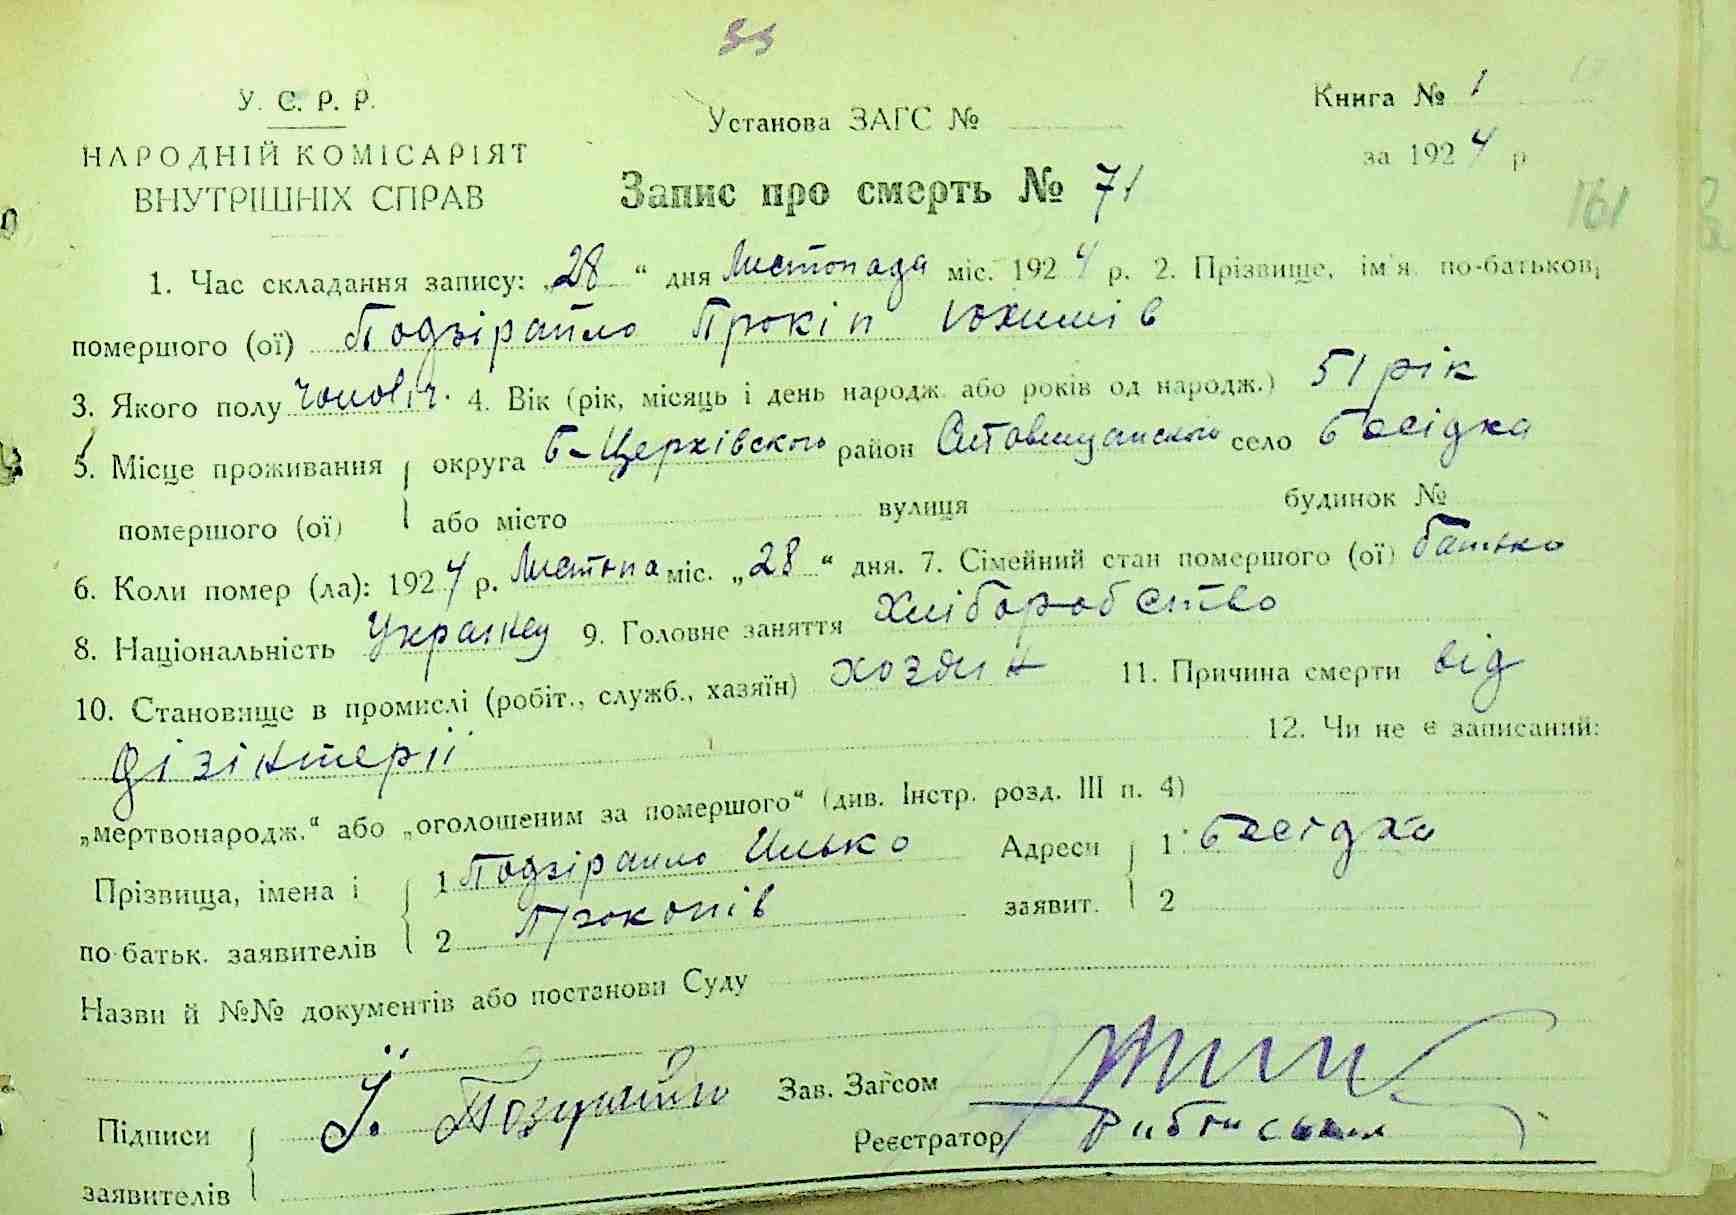 У. С. Р. Р.
НАРОДНІЙ КОМІСАРІЯТ
ВНУТРІШНІХ СПРАВ
Установа ЗАГС №
Книга № 1
за 1924 р
Запис про смерть № 71
161
1. Час складання запису: „28“ дня Листопада міс. 1924 р. 2. Прізвище, ім'я по-батькові
помершого (ої) Подзірайло Прокіп Юхимів
3. Якого полу чоловіч. 4. Вік (рік, місяць і день народж. або років од народж.) 51 рік
5. Місце проживання округа Б-Церківського район Ставищанського село Бесідка
помершого (ої) або місто вулиця будинок №
6. Коли помер (ла): 1924 р. Листопа міс. „28“ дня. 7. Сімейний стан помершого (ої) батько
8. Національність Украінец 9. Головне заняття Хліборобство
10. Становище в промислі (робіт., служб., хазяїн) хозяин 11. Причина смерти від
дізінтеріі 12. Чи не є записаний:
„мертвонародж.“ або „оголошеним за помершого“ (див. Інстр. розд. III п. 4)
Прізвища, імена і 1 Подзірайло Илько Адреси 1 Бесідка
по-батьк. заявителів 2 Прокопів заявит. 2
Назви й №№ документів або постанови Суду
Зав. Загсом
Підписи Ї. Реєстратор
заявителів